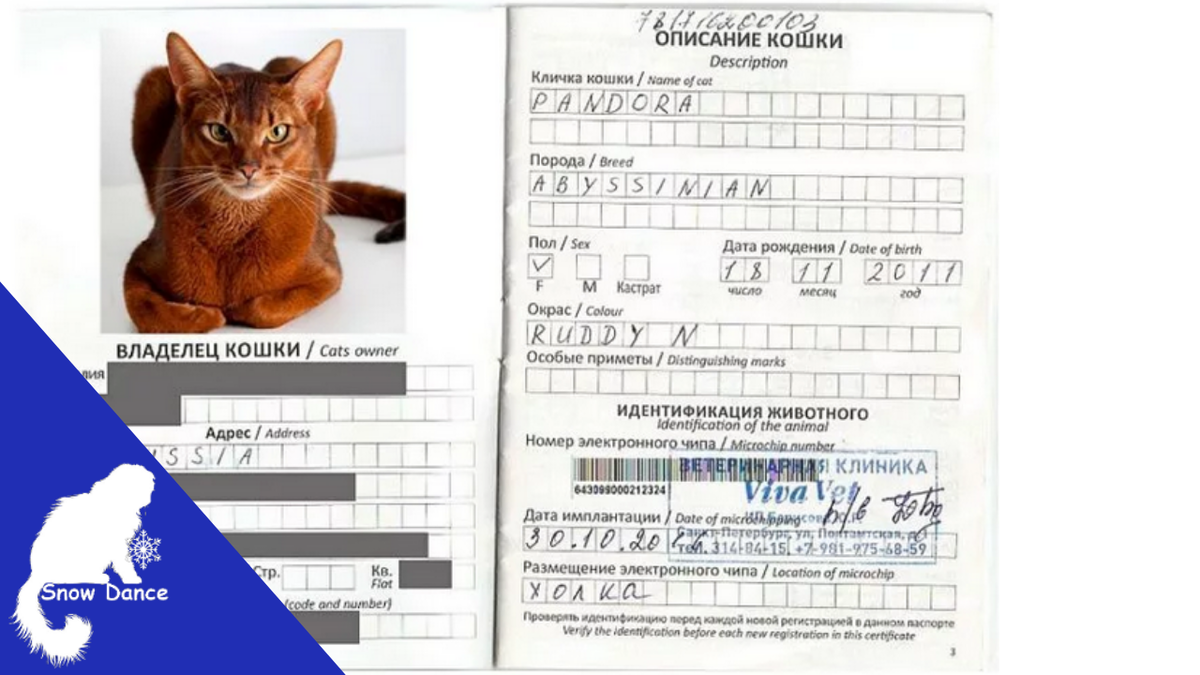 ВЛАДЕЛЕЦ КОШКИ / Cats owner
Адрес / Address
SSIA
Стр.
Кв.
Flat
(code and number)
Snow Dance
ОПИСАНИЕ КОШКИ
Description
Кличка кошки / Name of cat
PANDORA
Порода / Breed
ABYSSINIAN
Пол / Sex
Дата рождения / Date of birth
18 11 2011
F M Кастрат
число месяц год
Окрас / Colour
RUDDY N
Особые приметы / Distinguishing marks
ИДЕНТИФИКАЦИЯ ЖИВОТНОГО
Identification of the animal
Номер электронного чипа / Microchip number
ВЕТЕРИНАРНАЯ КЛИНИКА
643099000212324
Viva Vet
Дата имплантации / Date of microchipping
Санкт-Петербург, ул. Полтавская, д
30.10.20
тел. 314-84-15, +7-981-975-68-59
Размещение электронного чипа / Location of microchip
ХОЛКА
Проверять идентификацию перед каждой новой регистрацией в данном паспорте
Verify the identification before each new registration in this certificate
3